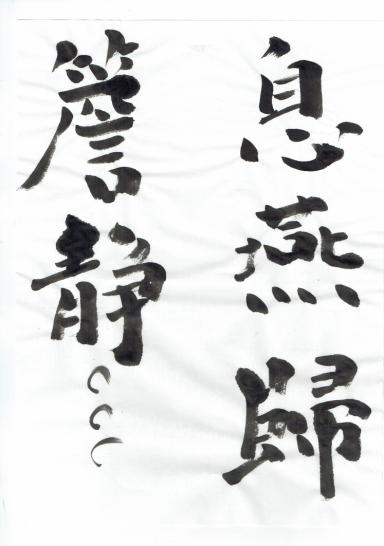 息燕歸
簷静